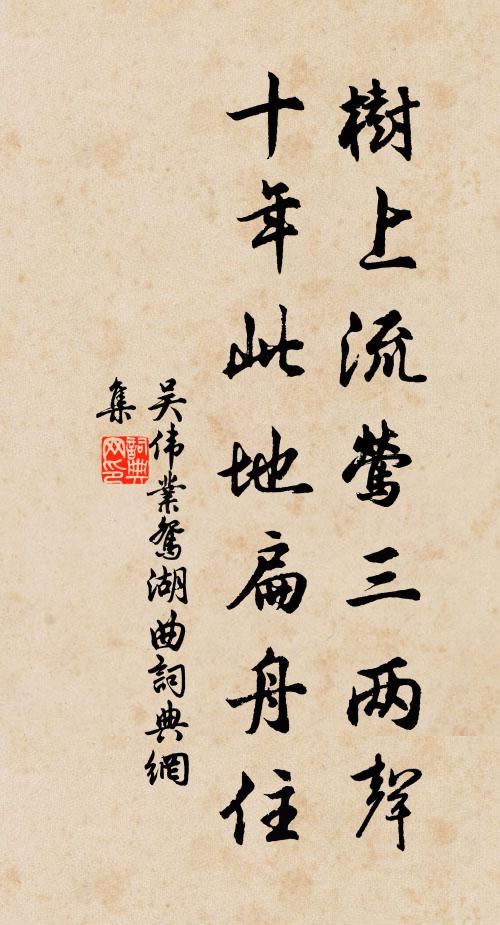 樹上流莺三两聲
十年此地扁舟住
吴伟業鴛湖曲詞典網
集
詞典网印